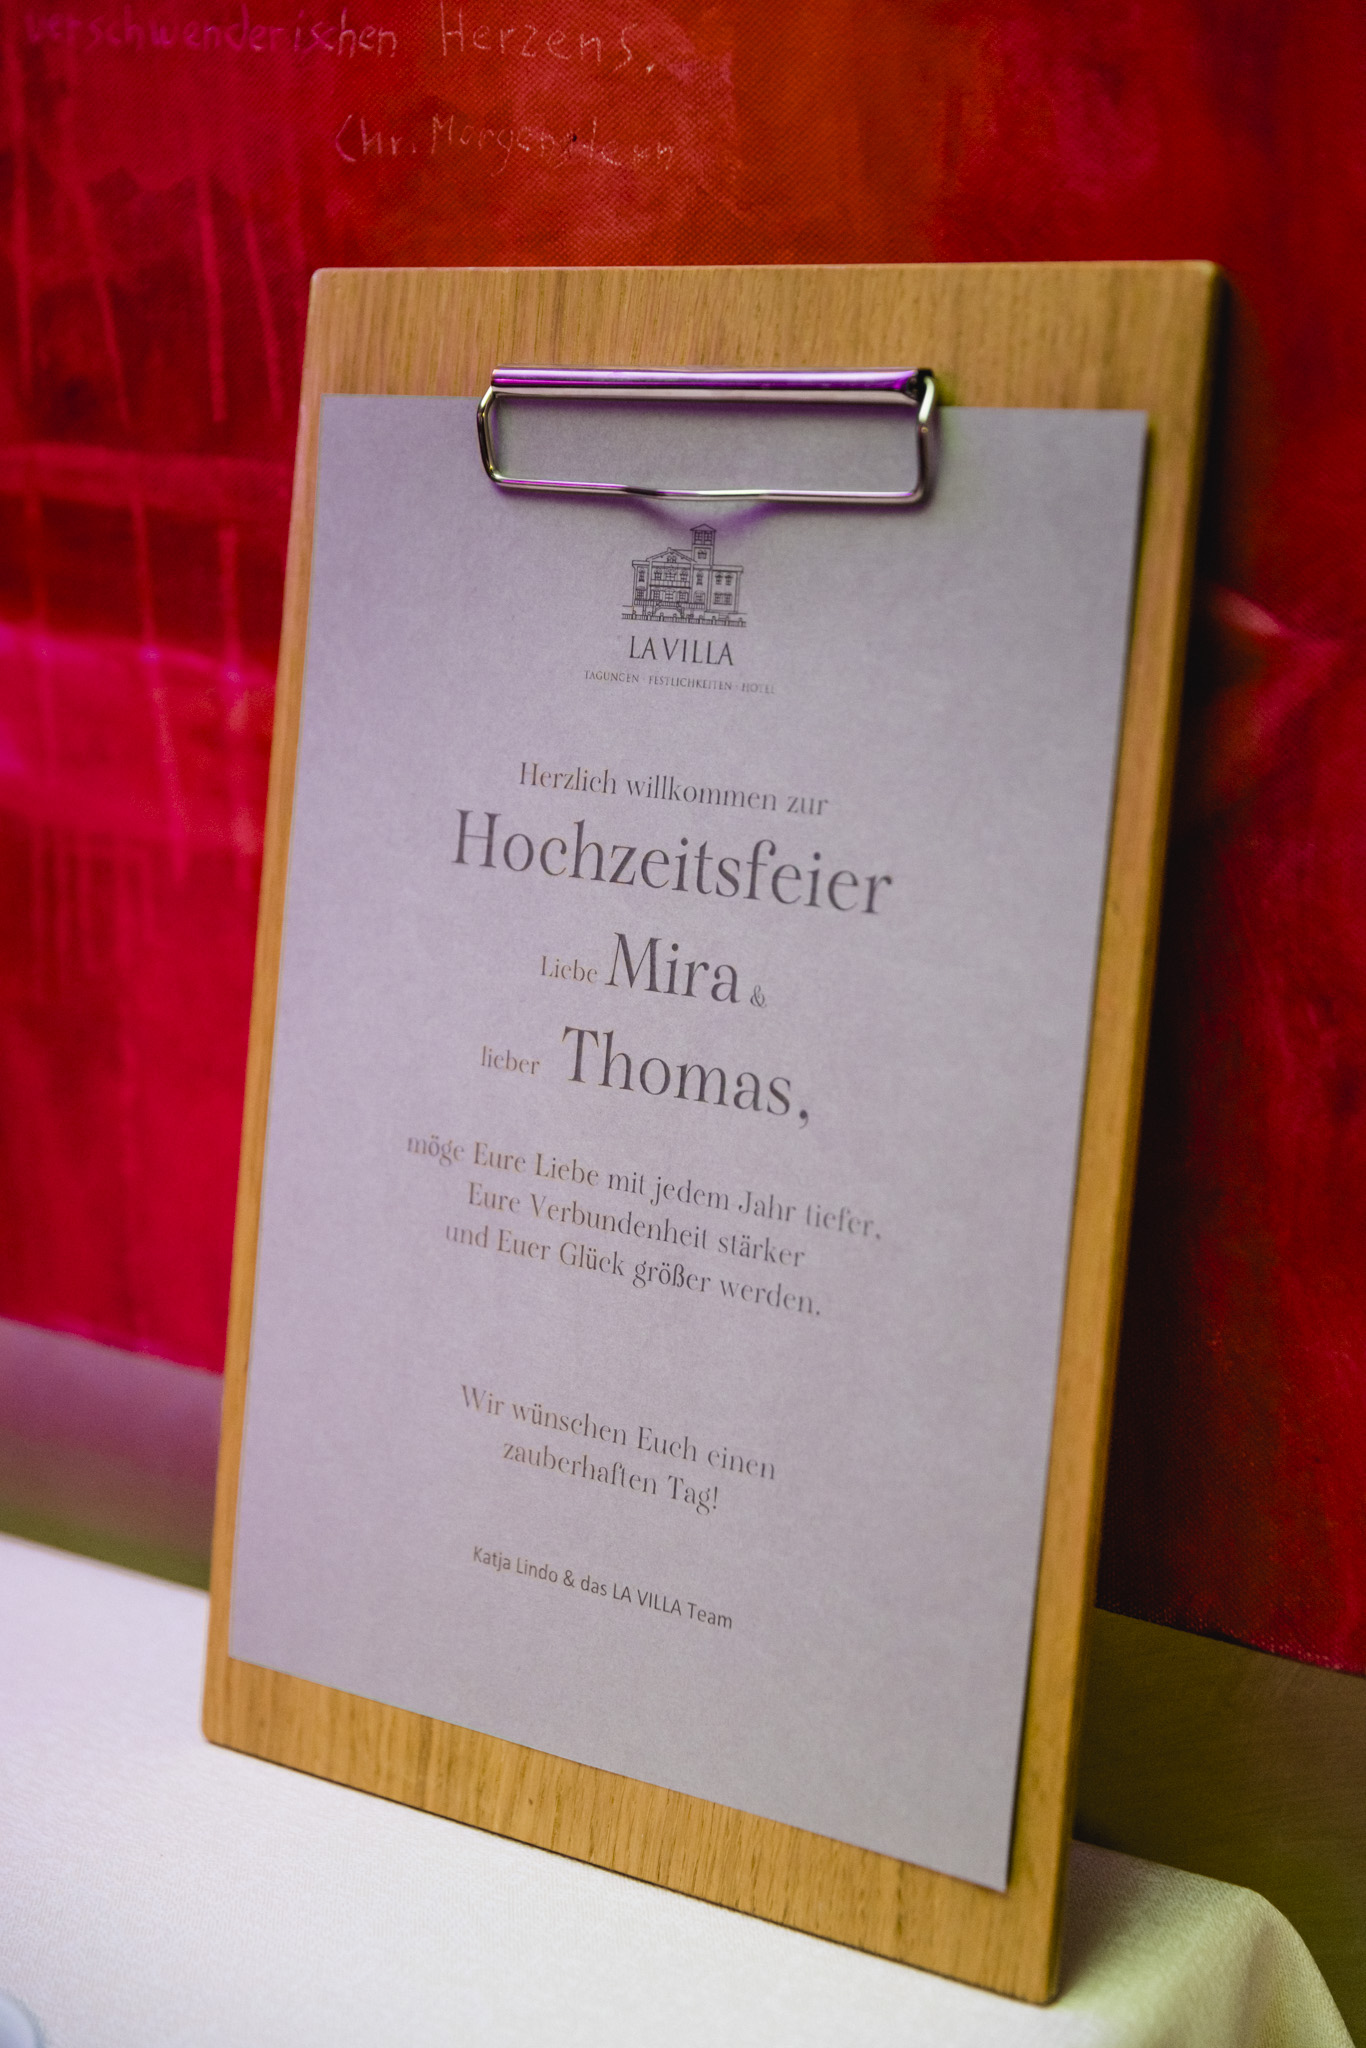 verschwenderischen Herzens.
Chr. Morgenstern
LA VILLA
TAGUNGEN · FESTLICHKEITEN · HOTEL
Herzlich willkommen zur
Hochzeitsfeier
Liebe Mira &
lieber Thomas,
möge Eure Liebe mit jedem Jahr tiefer,
Eure Verbundenheit stärker
und Euer Glück größer werden.
Wir wünschen Euch einen
zauberhaften Tag!
Katja Lindo & das LA VILLA Team